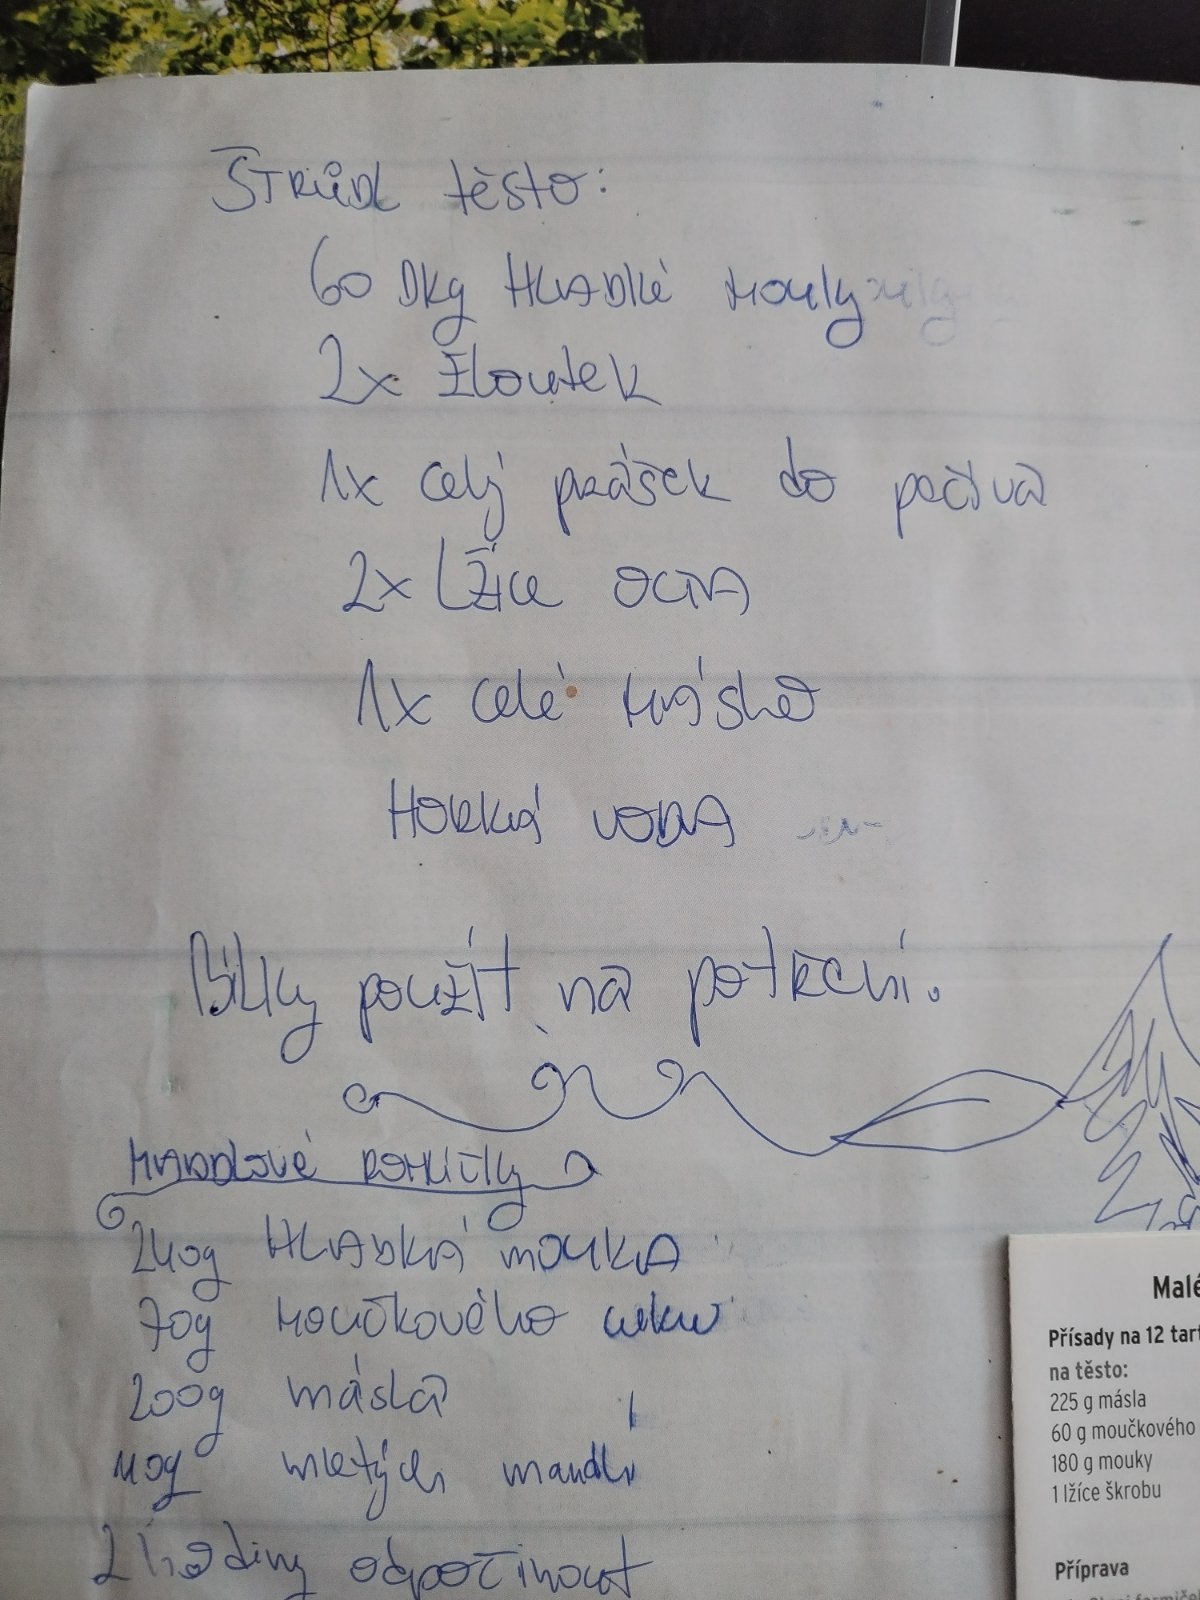 ŠTRŮDL těsto:
60 DKg HLADKÉ mouky
2x žloutek
1x celý prášek do pečiva
2x lžíce octa
1x celé máslo
HORKÁ VODA
Bílky použít na potření.
Mandlové rohlíčky
240g HLADKÁ mouka
70g moučkového cukru
200g másla
110g mletých mandlí
2 hodiny odpočinout
Malé
Přísady na 12 tart
na těsto:
225 g másla
60 g moučkového
180 g mouky
1 lžíce škrobu
Příprava